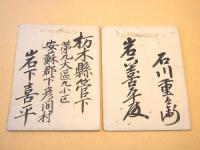 石川重右衛
岩下善平殿
栃木縣管下
第九大區九小区
安蘇郡下彦間村
岩下喜平